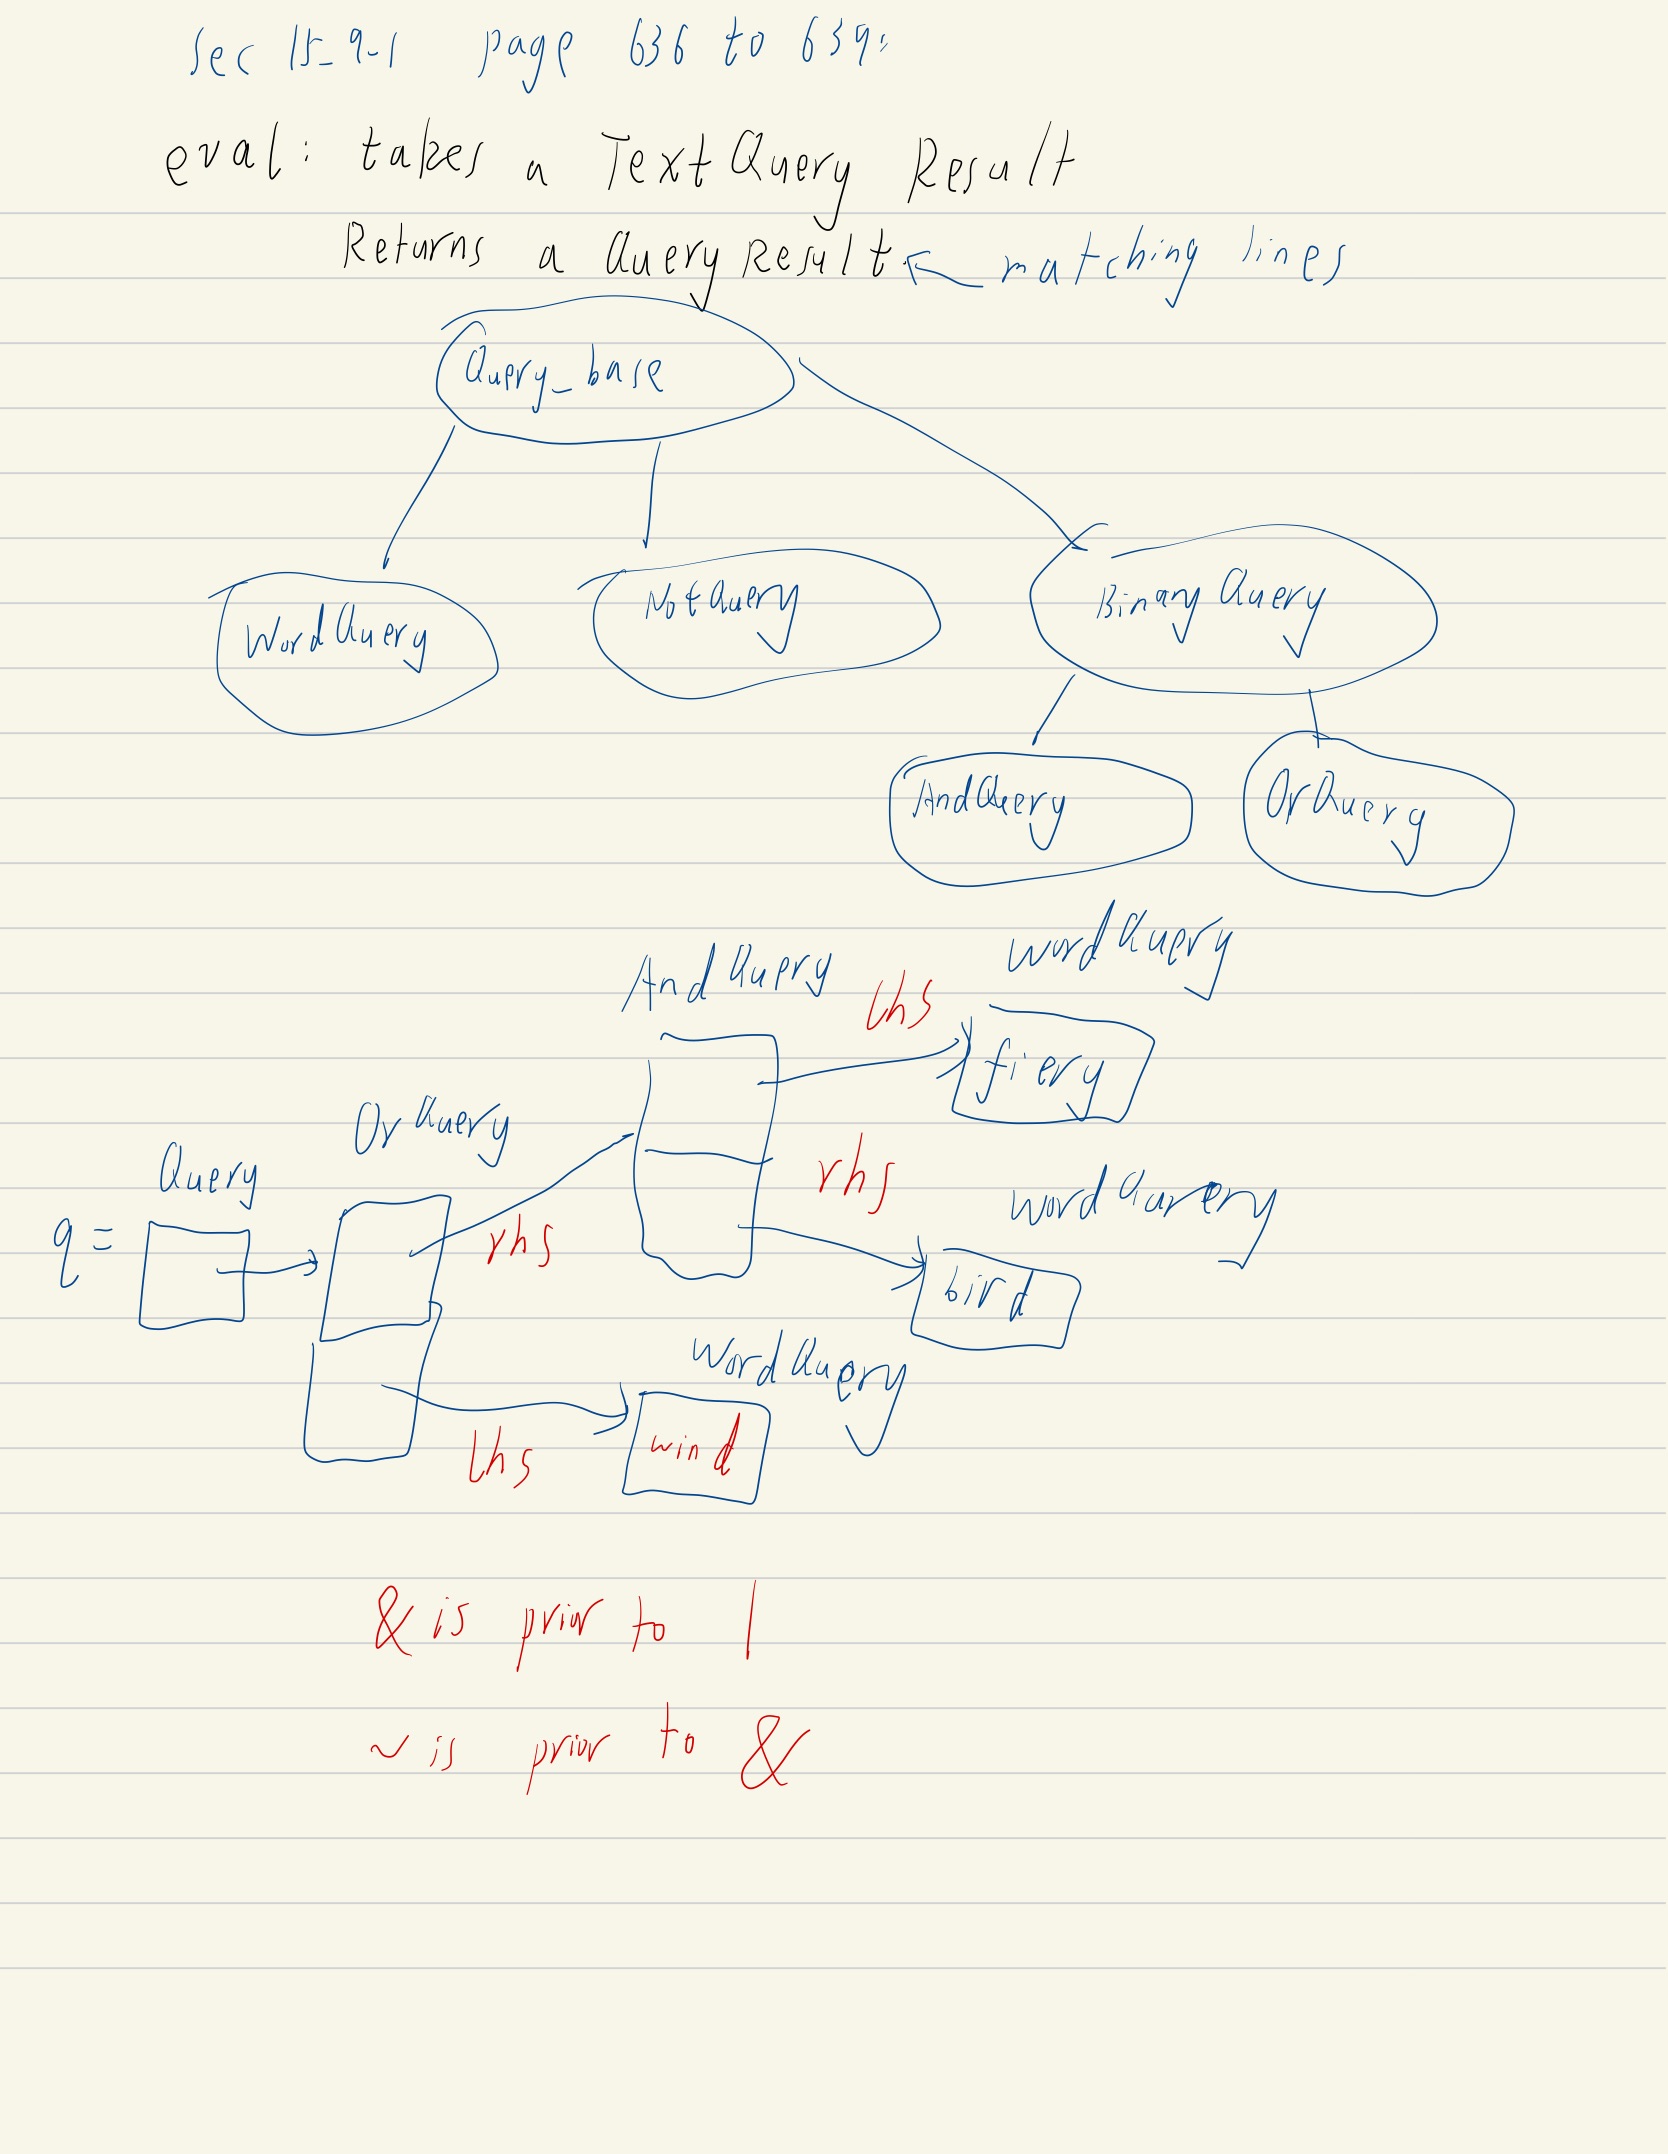 sec 15-9-1 page 636 to 639:
eval: takes a TextQuery Result
Returns a QueryResult. matching lines
Query_base
WordQuery NotQuery BinaryQuery
AndQuery OrQuery
AndQuery lhs WordQuery
fiery
Query OrQuery rhs WordQuery
q = rhs bird
WordQuery
lhs wind
& is prior to |
~ is prior to &